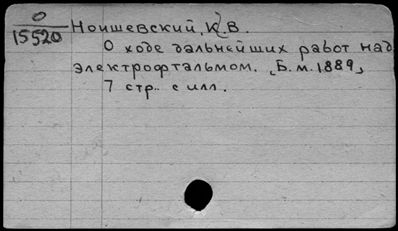 0
15520
Ноишевский, К. В.
О ходе дальнейших работ над
электрофтальмом. [Б. м. 1889]
7 стр. с илл.